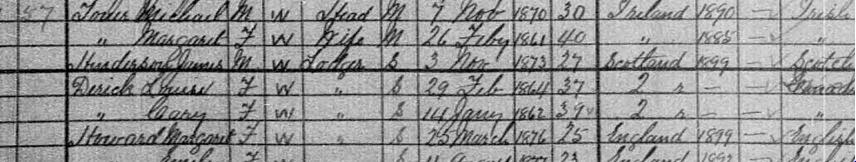 57 Tower Michael M W Head M 7 Nov 1870 30 Ireland 1890 — Irish
" Margaret F W Wife M 26 Feby 1861 40 " 1885 — "
Henderson James M W Lodger S 3 Nov 1873 27 Scotland 1899 — Scotch
Derick Louise F W " S 29 Feb 1864 37 2 r —
" Cary F W " S 14 Jany 1862 39 2 r — "
Howard Margaret F W " S 25 March 1876 25 England 1899 — English
F W " S 23 England